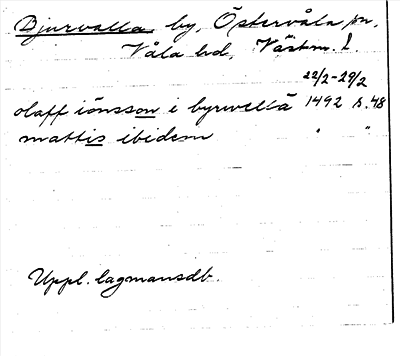 Bjurvalla by, Östervåla sn,
Våla hd, Västm. l.
22/2-29/2
olaff iönsson i byrwellä 1492 s. 48
mattis ibidem " "
Uppl. lagmansdb.